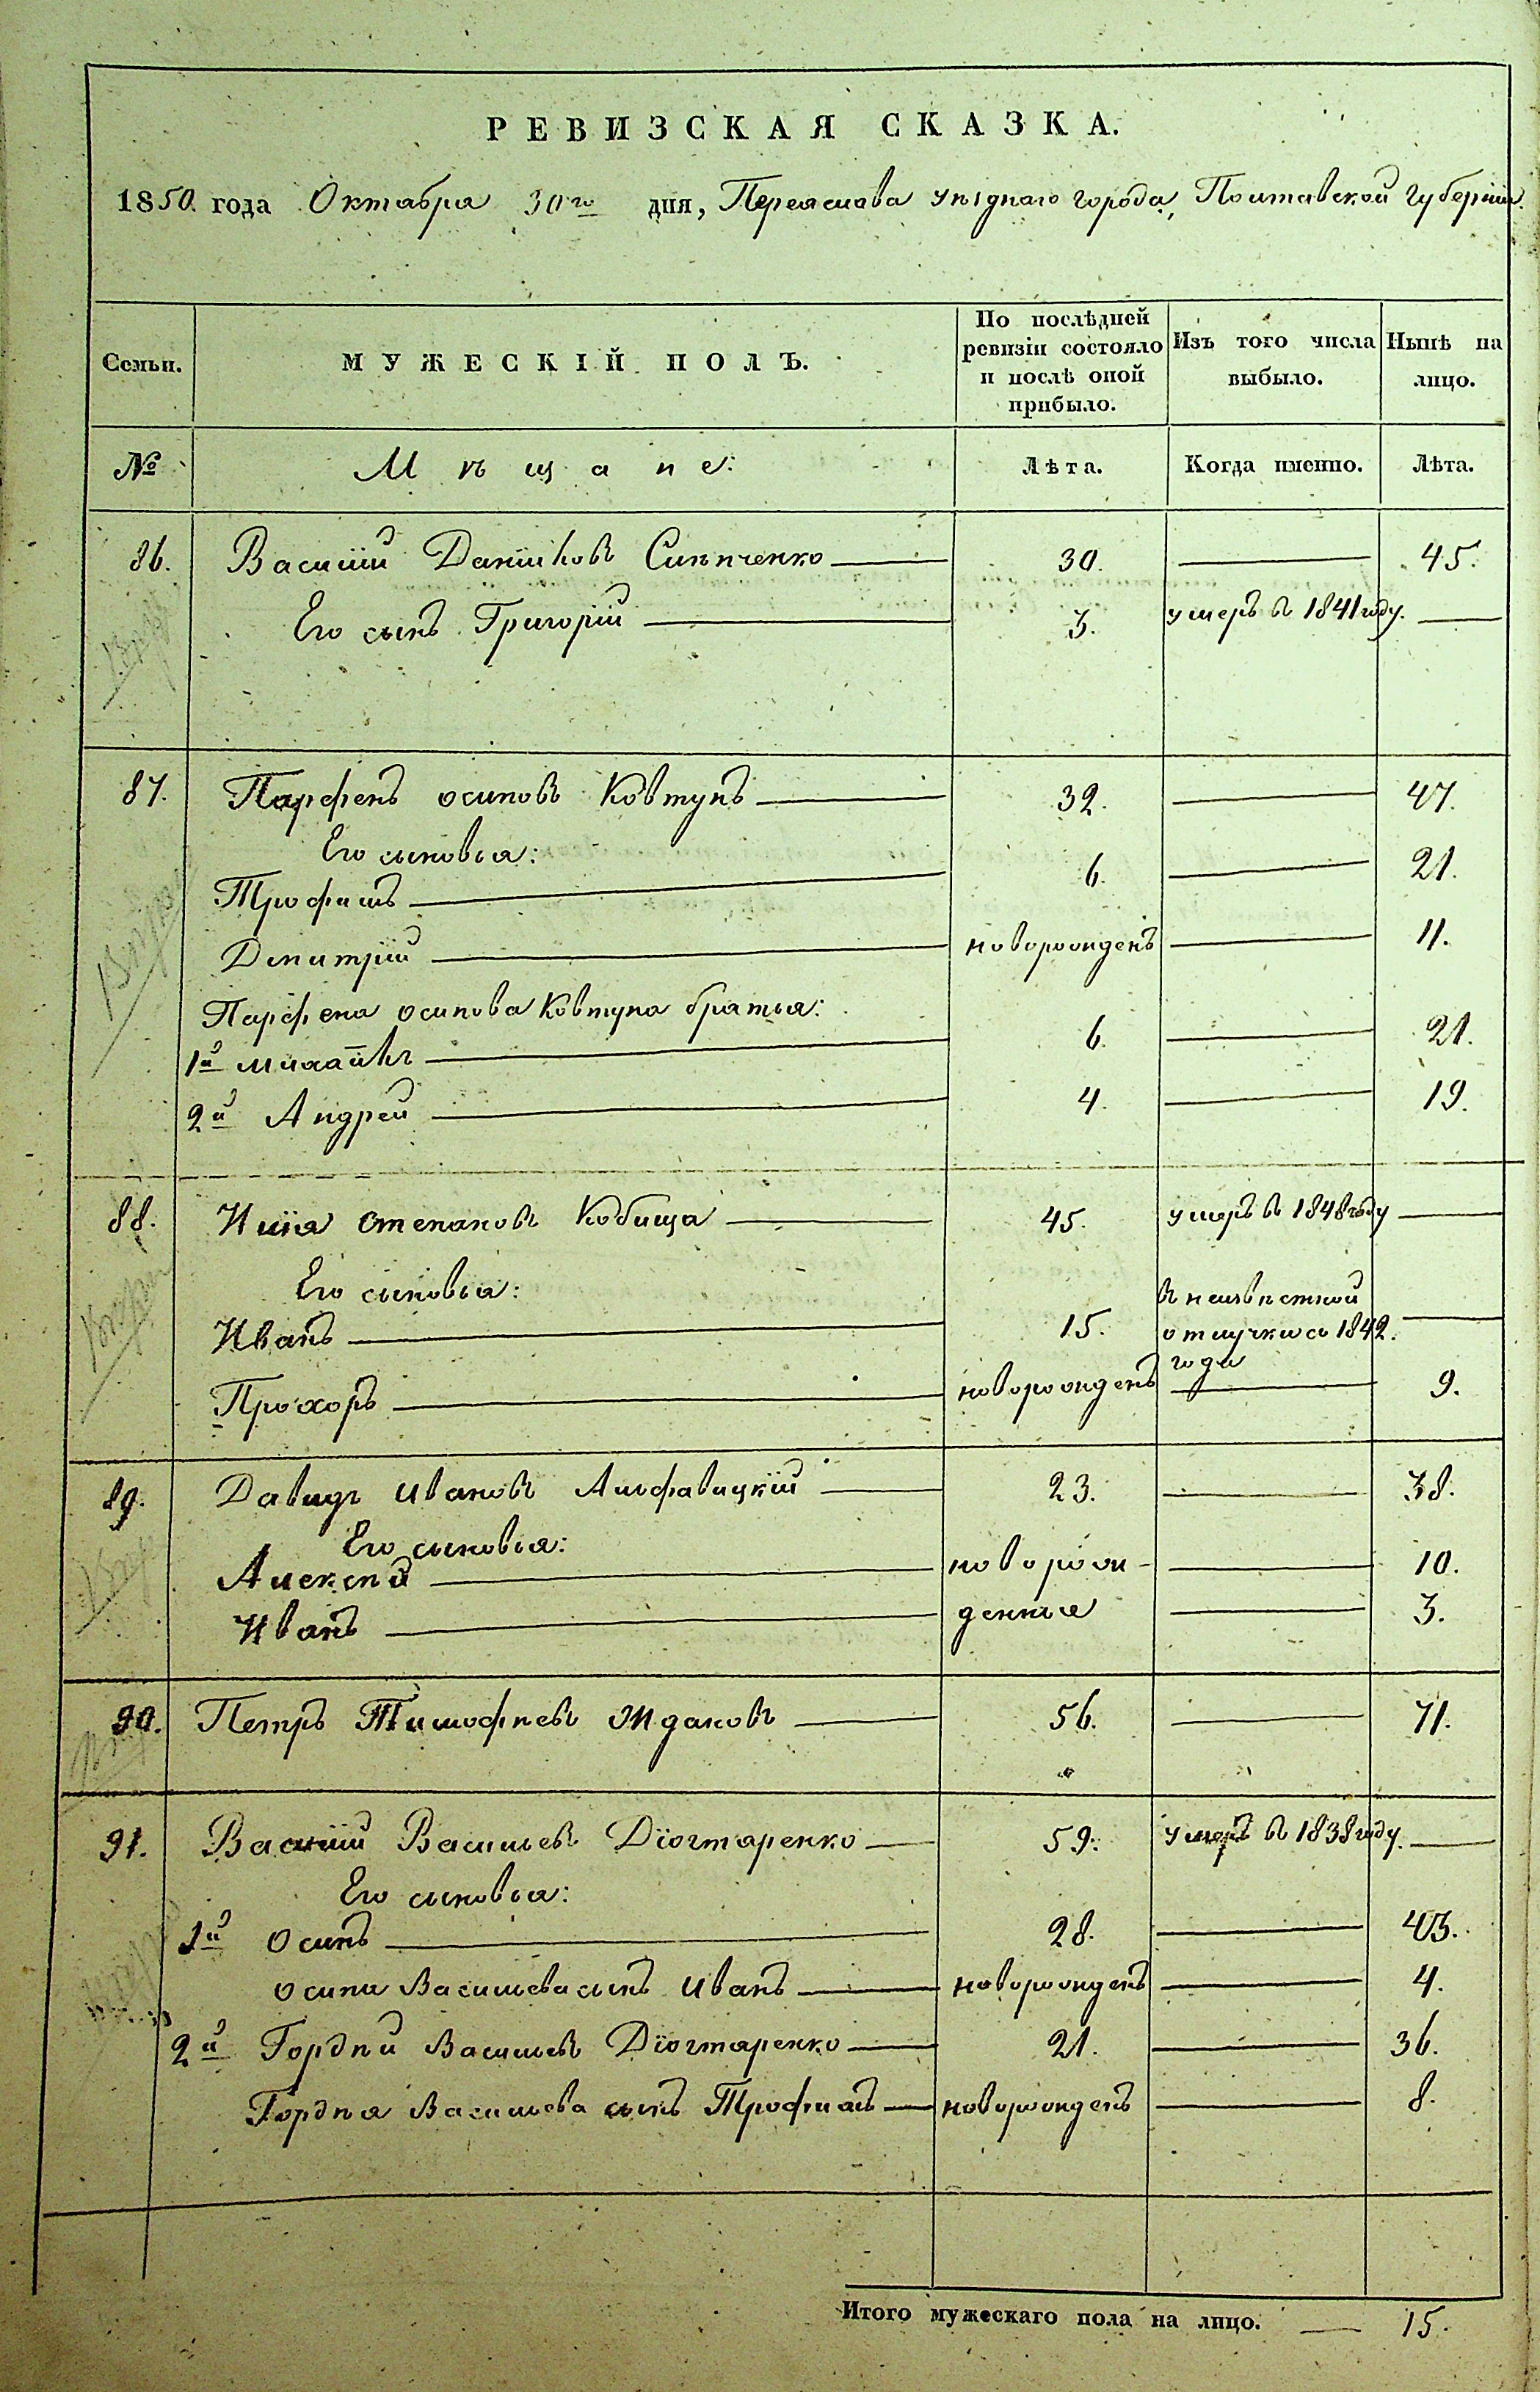 РЕВИЗСКАЯ СКАЗКА.
1850 года Октября 30го дня, Переяслава уѣзднаго города, Полтавской Губерніи.
Семьи. МУЖЕСКІЙ ПОЛЪ. По послѣдней ревизіи состояло и послѣ оной прибыло. Изъ того числа выбыло. Нынѣ на лицо.
№ Мѣщане: Лѣта. Когда именно. Лѣта.
86. Василій Даниловъ Слѣпченко 30. 45.
Его сынъ Григорій 3. умеръ въ 1841 году.
87. Парфенъ Осиповъ Ковтунъ 32. 47.
Его сыновья:
Трофимъ 6. 21.
Дмитрій новорожденъ 11.
Парфена Осипова Ковтуна братья:
1й Михайлъ 6. 21.
2й Андрей 4. 19.
88. Илія Степановъ Кобища 45. умеръ въ 1848 году
Его сыновья:
Иванъ 15. въ неизвѣстной отлучки съ 1842. года
Прохоръ новорожденъ 9.
89. Давидъ Ивановъ Альфавицкій 23. 38.
Его сыновья:
Алексѣй новорож- 10.
Иванъ денные 3.
90. Петръ Тимофѣевъ Ждановъ 56. 71.
91. Василій Васильевъ Діогтяренко 59. умеръ въ 1838 году.
Его сыновья:
1й Осипъ 28. 43.
Осипа Васильева сынъ Иванъ новорожденъ 4.
2й Гордѣй Васильевъ Діогтяренко 21. 36.
Гордѣя Васильева сынъ Трофимъ новорожденъ 8.
Итого мужескаго пола на лицо. 15.